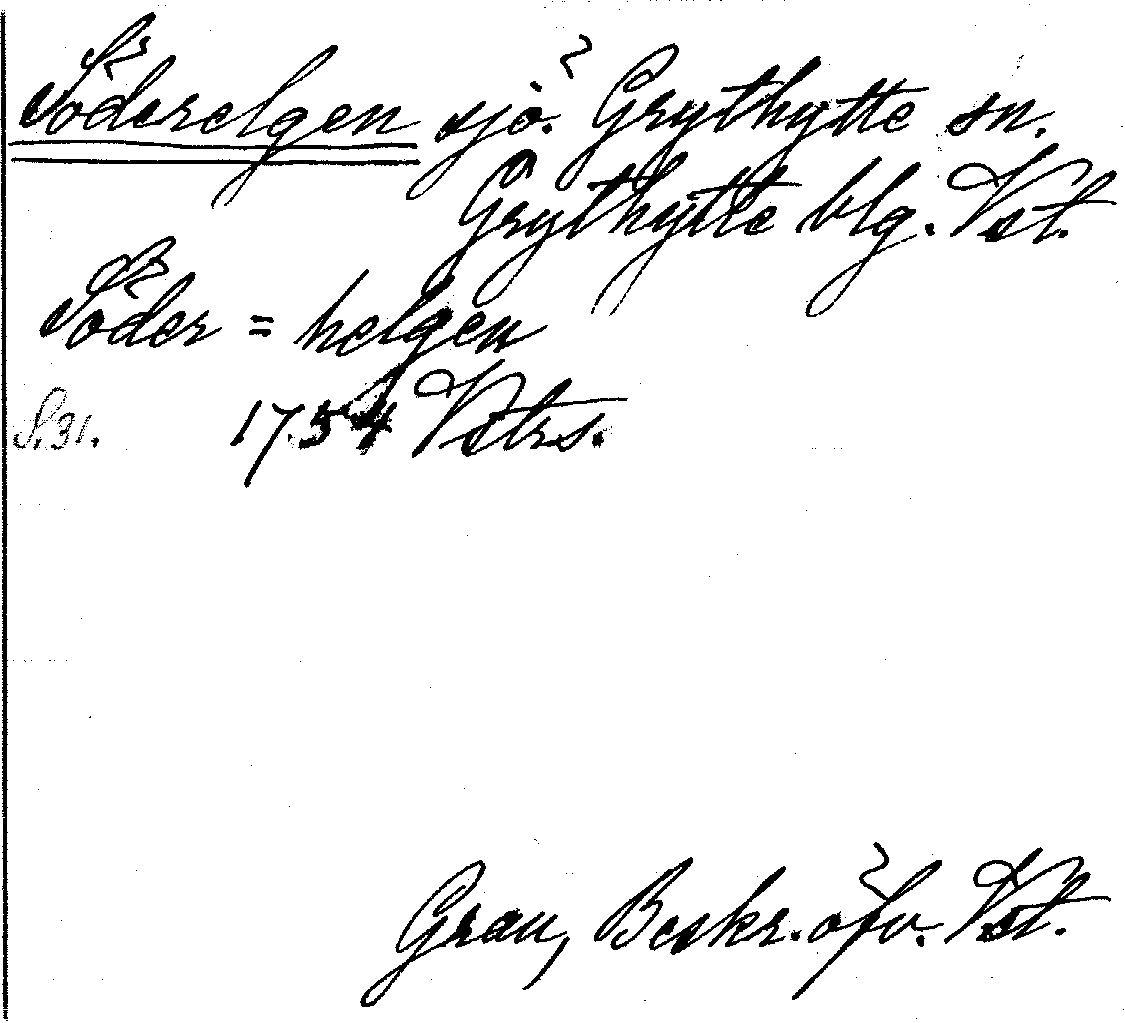 Söderelgen sjö. Grythytte sn.
Grythytte blg. Vst.
Söder = helgen
S. 31. 1754 Vstrs.
Grau, Beskr. öfv. Vst.